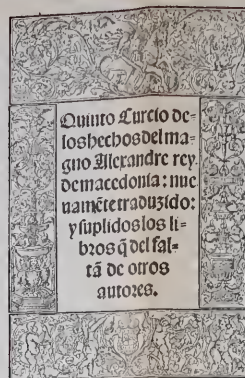 Quinto Curcio de-
los hechos del ma-
gno Alexandre rey.
de macedonia: nue
uamēte traduzido:
y suplidos los li-
bros q̄ del fal-
tā de otros
autores.